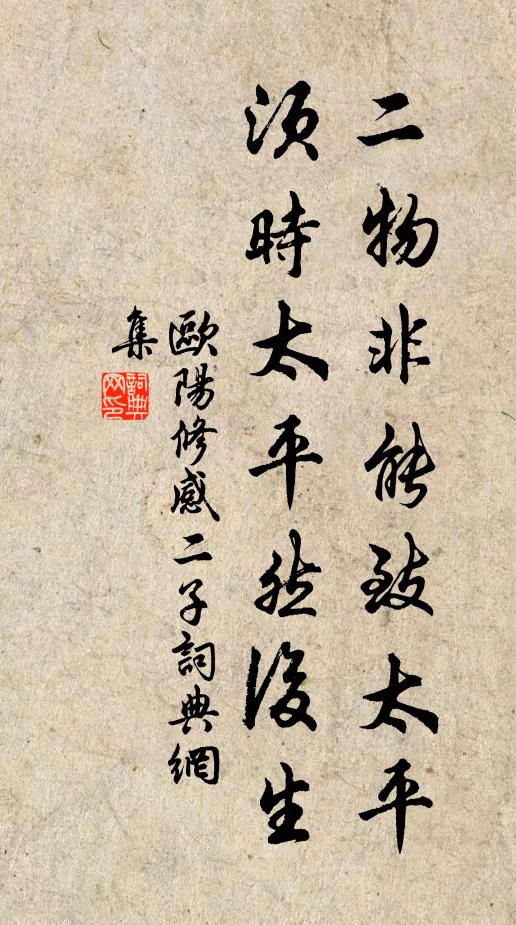 二物非能致太平
須時太平然後生
歐陽修感二子詞典網
集
詞典网印